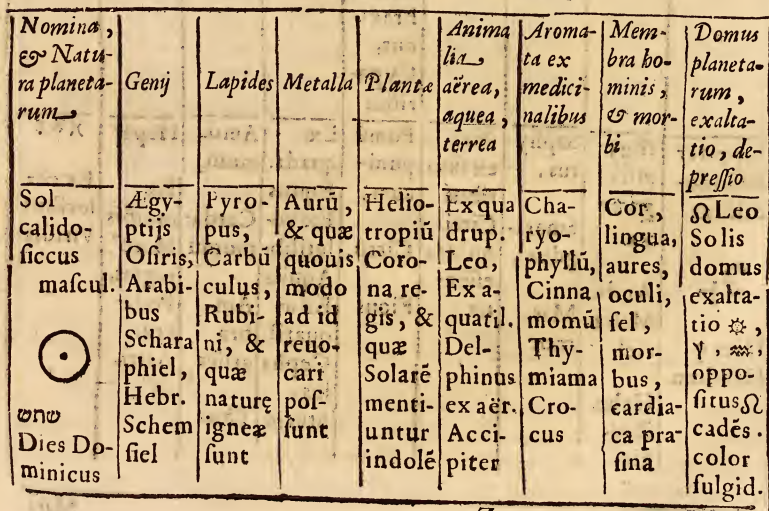 Nomina,
& Natu-
ra planeta-
rum
Genij
Lapides
Metalla
Plantæ
Anima
lia
aërea,
aquea,
terrea
Aroma-
ta ex
medici-
nalibus
Mem-
bra ho-
minis,
& mor-
bi
Domus
planeta-
rum,
exalta-
tio, de-
pressio
Sol
calido-
siccus
mascul.
☉
שמש
Dies Do-
minicus
Ægy-
ptijs
Osiris,
Arabi-
bus
Schara
phiel,
Hebr.
Schem
siel
Pyro-
pus,
Carbū
culus,
Rubi-
ni, &
quæ
naturę
igneæ
sunt
Aurū,
& quæ
quouis
modo
ad id
reuo-
cari
pos-
sunt
Helio-
tropiū
Coro-
na re-
gis, &
quæ
Solarē
menti-
untur
indolē
Ex qua
drup.
Leo,
Ex a-
quatil.
Del-
phinus
ex aër.
Acci-
piter
Cha-
ryo-
phyllū,
Cinna
momū
Thy-
miama
Cro-
cus
Cor,
lingua,
aures,
oculi,
fel,
mor-
bus,
cardia-
ca pra-
sina
♌ Leo
Solis
domus
exalta-
tio ☼,
♈, ♒,
oppo-
situs ♌
cadēs.
color
fulgid.